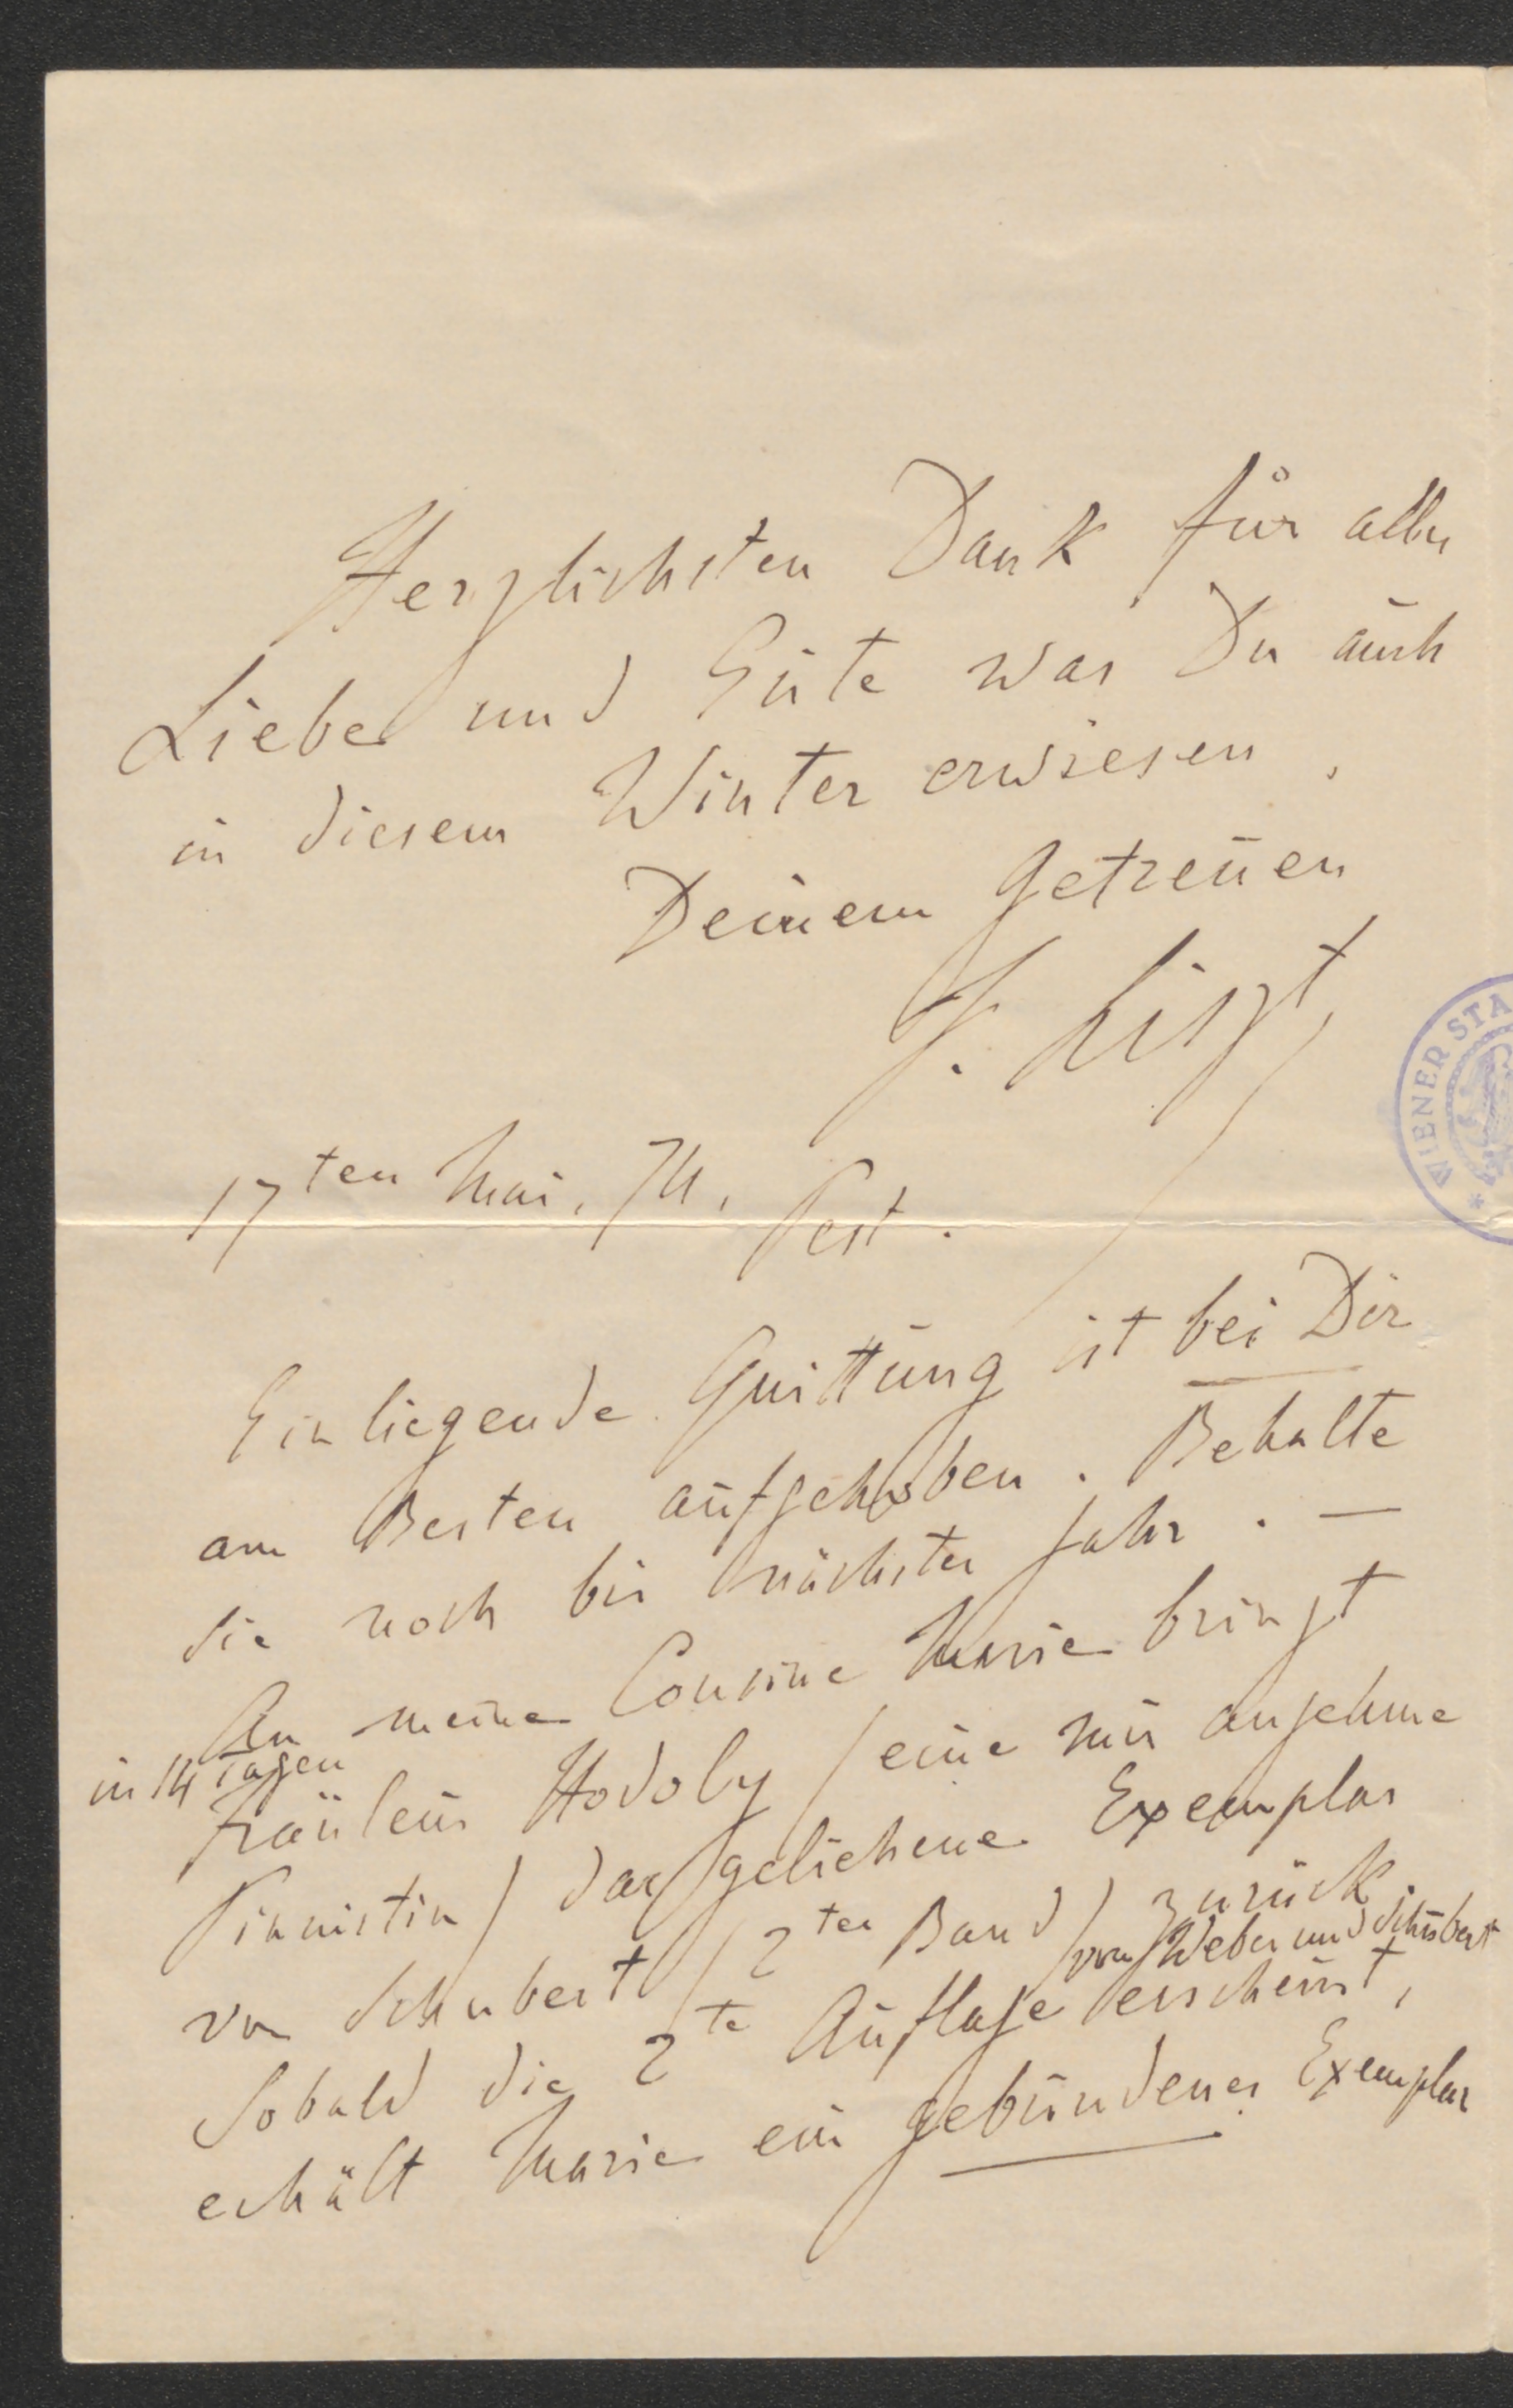 Herzlichsten Dank für alles
Liebe und Güte was Du auch
in diesem Winter erwiesen,
Deinem getreuen
F. Liszt
17ten Mai, 74, Pest.
WIENER STA
Einliegende Quittung ist bei Dir
am Besten aufgehoben. Behalte
sie noch bis nächstes Jahr. —
An meine Cousine Marie bringt
in 14 Tagen
Fräulein Hodoly / eine mir angehme
Pianistin / das geliehene Exemplar
von Schubert / 2ter Band / zurück.
von Weber und Schubert
Sobald die 2te Auflage erscheint,
erhält Marie ein gebundenes Exemplar